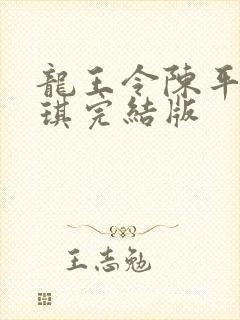 龍王令陳平
琪完結版
王志勉